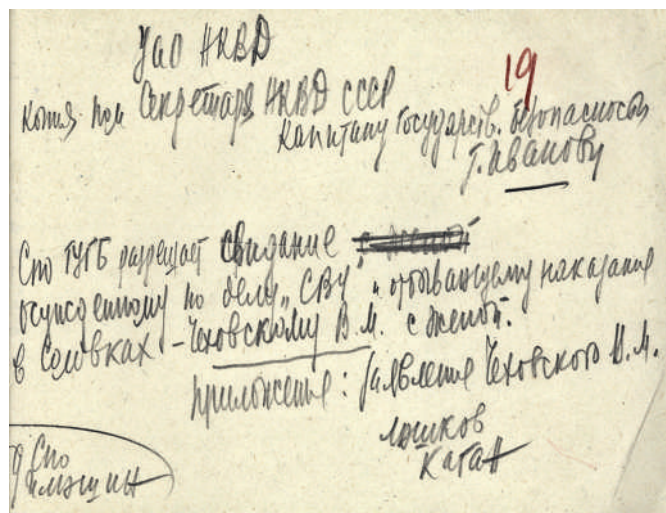 УАО НКВД
19
Копия пом Секретаря НКВД СССР
Капитану государств. безопасность
т. Иванову
Спо ГУГБ разрещает свидание с женой
осужденному по делу „СВУ" и отбывающему наказание
в Соловках – Чеховскому В.М. с женой.
приложение: заявление Чеховского В.М.
Люшков
Каган
Спо